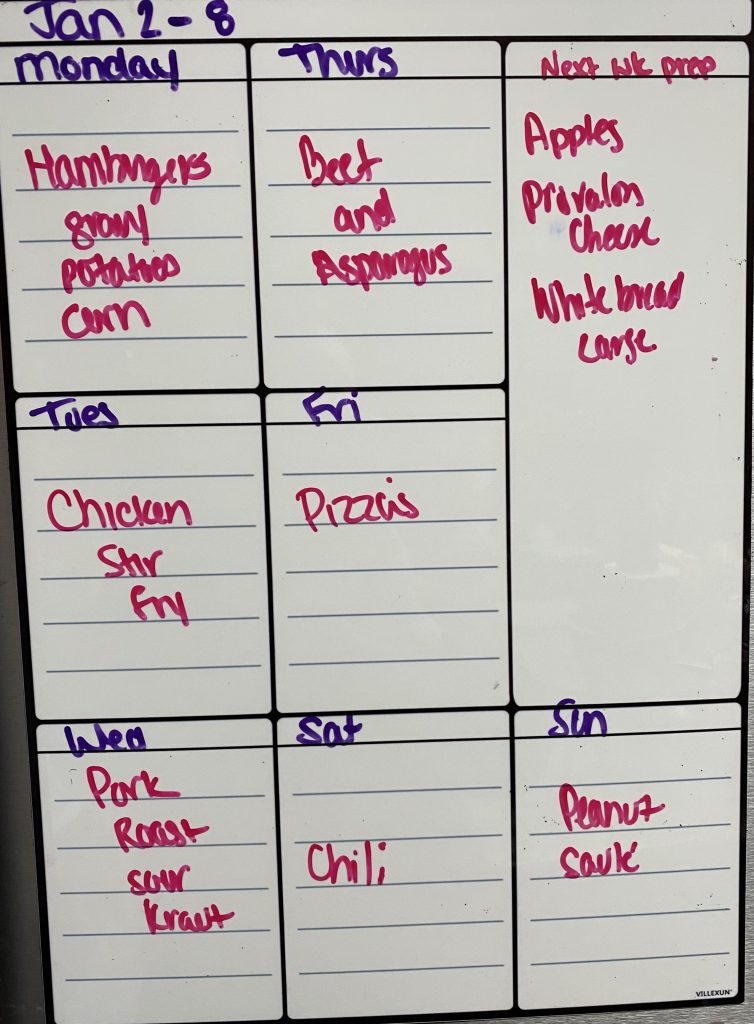 Jan 2 - 8
Monday
Hamburgers
gravy
potatoes
corn
Thurs
Beef
and
Asparagus
Next wk prep
Apples
Provalon
Cheese
White bread
large.
Tues
Chicken
Stir
Fry
Fri
Pizzas
Wed
Pork
Roast
sour
Kraut
Sat
Chili
Sun
Peanut
VILLEXUN